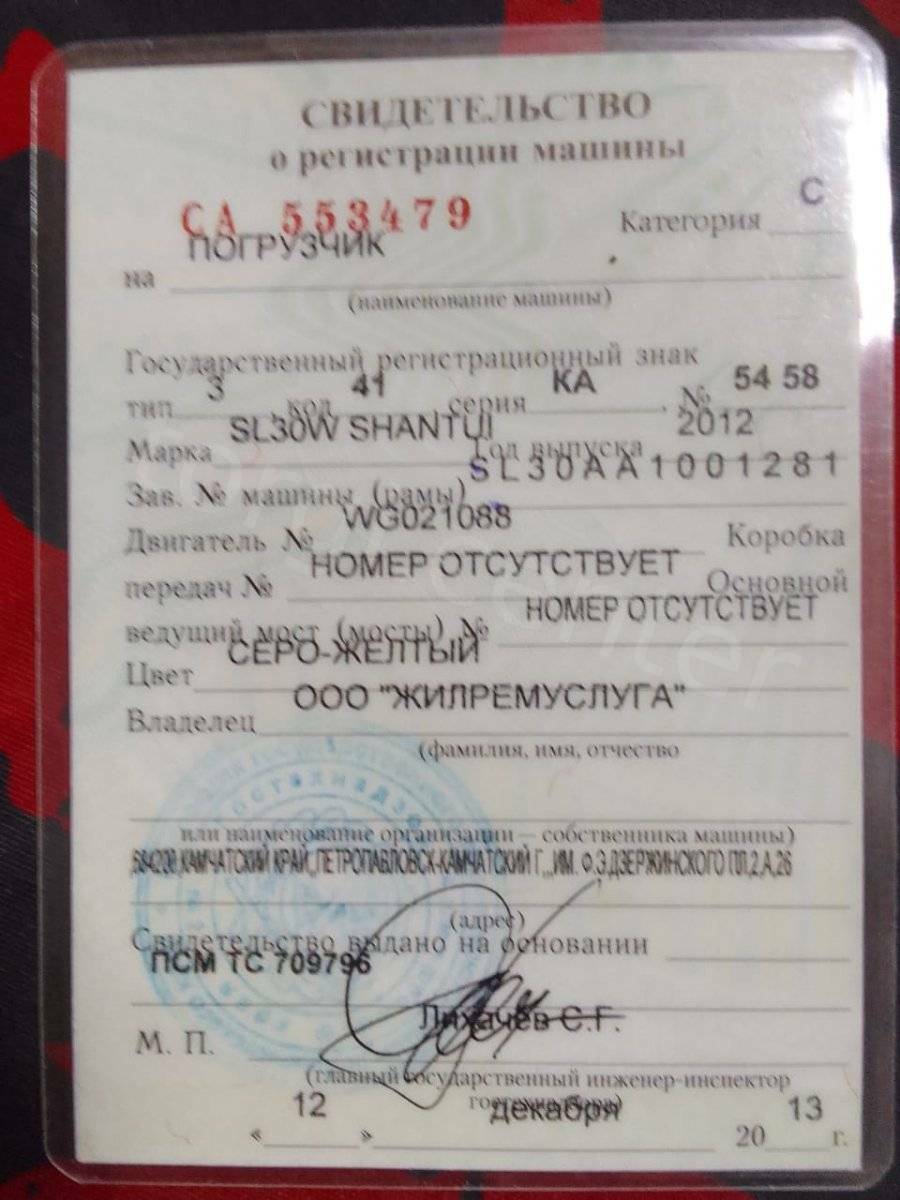 СВИДЕТЕЛЬСТВО
о регистрации машины
СА 553479 Категория С
на ПОГРУЗЧИК
(наименование машины)
Государственный регистрационный знак
тип 3 код 41 серия КА , № 54 58
Марка SL30W SHANTUI Год выпуска 2012
Зав. № машины (рамы) SL30AA1001281
Двигатель № WG021088 Коробка
передач № НОМЕР ОТСУТСТВУЕТ Основной
ведущий мост (мосты) № НОМЕР ОТСУТСТВУЕТ
Цвет СЕРО-ЖЕЛТЫЙ
Владелец ООО "ЖИЛРЕМУСЛУГА"
(фамилия, имя, отчество
или наименование организации – собственника машины)
КАМЧАТСКИЙ КРАЙ,,ПЕТРОПАВЛОВСК-КАМЧАТСКИЙ Г,,,ИМ. Ф.Э.ДЗЕРЖИНСКОГО ПЛ,2,А,26
(адрес)
Свидетельство выдано на основании
ПСМ ТС 709796
Лихачёв С.Г.
М. П.
(главный государственный инженер-инспектор
гостехнадзора)
« 12 » декабря 20 13 г.